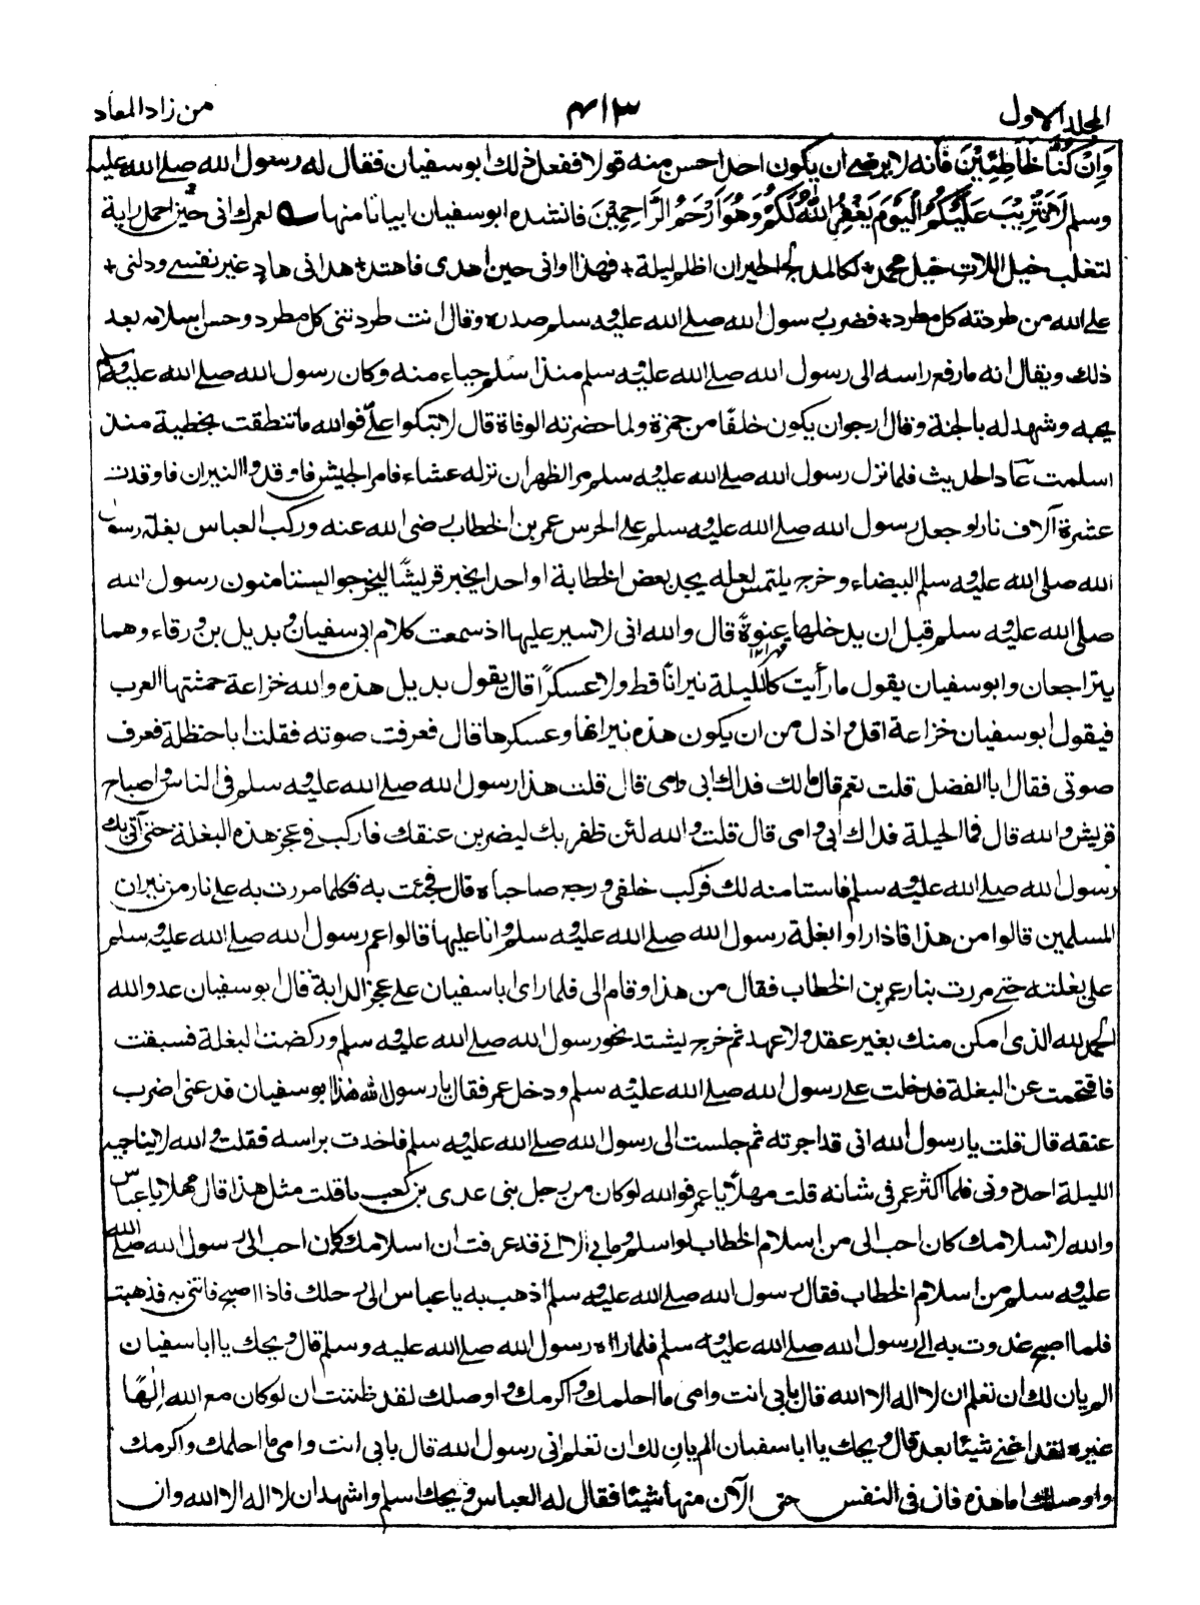 المجلد الاول
۴۱۳
من زاد المعاد
وَاِنْ كُنَّا خَاطِئِيْنَ فانه لا يرضى ان يكون احد احسن منه قولا ففعل ذلك ابو سفيان فقال له رسول الله صلى الله عليه
وسلم لَا تَثْرِيْبَ عَلَيْكُمُ الْيَوْمَ يَغْفِرُ اللّٰهُ لَكُمْ وَهُوَ اَرْحَمُ الرَّاحِمِيْنَ فانشده ابو سفيان ابياتا منها لعمرك انى حين احمل راية
لتغلب خيل اللات خيل محمد + لكالمدلج الحيران اظلم ليلة + فهذا اوانى حين اهدى فاهتد + هدانى هاد غير نفسى ودلنى +
على الله من طردته كل مطرد + فضرب رسول الله صلى الله عليه وسلم صدره وقال انت طردتنى كل مطرد وحسن اسلامه بعد
ذلك ويقال انه ما رفع راسه الى رسول الله صلى الله عليه وسلم منذ اسلم حياء منه وكان رسول الله صلى الله عليه وسلم
يحبه وشهد له بالجنة وقال ارجو ان يكون خلفًا من حمزة ولما حضرته الوفاة قال لا تبكوا علىّ فوالله ما تنطقت بخطية منذ
اسلمت عاد الحديث فلما نزل رسول الله صلى الله عليه وسلم مر الظهران نزله عشاء فامر الجيش فاوقدوا النيران فاوقدت
عشرة آلاف نار وجعل رسول الله صلى الله عليه وسلم على الحرس عمر بن الخطاب رضى الله عنه وركب العباس بغلة رسول
الله صلى الله عليه وسلم البيضاء وخرج يلتمس لعله يجد بعض الخطابة او احدا يخبر قريشًا ليخرجوا يستامنون رسول الله
صلى الله عليه وسلم قبل ان يدخلها عنوةً قال والله انى لاسير عليها اذ سمعت كلام ابى سفيان وبديل بن ورقاء وهما
يتراجعان وابو سفيان يقول ما رأيت كالليلة نيرانًا قط ولا عسكرًا قال يقول بديل هذه والله خزاعة حمشتها العرب
فيقول ابو سفيان خزاعة اقل واذل من ان يكون هذه نيرانها وعسكرها قال فعرفت صوته فقلت ابا حنظلة فعرف
صوتى فقال ابا الفضل قلت نعم قال مالك فداك ابى وامى قال قلت هذا رسول الله صلى الله عليه وسلم فى الناس واصباح
قريش والله قال فما الحيلة فداك ابى وامى قال قلت والله لئن ظفر بك ليضربن عنقك فاركب فى عجز هذه البغلة حتى آتى بك
رسول الله صلى الله عليه وسلم فاستامنه لك فركب خلفى ورجع صاحباه قال فجئت به فكلما مررت به على نار من نيران
المسلمين قالوا من هذا فاذا راوا بغلة رسول الله صلى الله عليه وسلم وانا عليها قالوا عم رسول الله صلى الله عليه وسلم
على بغلته حتى مررت بنار عمر بن الخطاب فقال من هذا وقام الى فلما راى ابا سفيان على عجز الدابة قال ابو سفيان عدو الله
الحمد لله الذى امكن منك بغير عقد ولا عهد ثم خرج يشتد نحو رسول الله صلى الله عليه وسلم وركضت البغلة فسبقت
فاقتحمت عن البغلة فدخلت على رسول الله صلى الله عليه وسلم ودخل عمر فقال يا رسول الله هذا ابو سفيان فدعنى اضرب
عنقه قال قلت يا رسول الله انى قد اجرته ثم جلست الى رسول الله صلى الله عليه وسلم فاخذت براسه فقلت والله لا يناجيه
الليلة احد دونى فلما اكثر عمر فى شانه قلت مهلًا يا عمر فوالله لو كان من رجل بنى عدى بن كعب ما قلت مثل هذا قال مهلا يا عباس
والله لاسلامك كان احب الى من اسلام الخطاب لو اسلم وما بى الا انى قد عرفت ان اسلامك كان احب الى رسول الله صلى الله
عليه وسلم من اسلام الخطاب فقال رسول الله صلى الله عليه وسلم اذهب به يا عباس الى رحلك فاذا اصبح فاتنى به فذهبت
فلما اصبح غدوت به الى رسول الله صلى الله عليه وسلم فلما راه رسول الله صلى الله عليه وسلم قال ويحك يا ابا سفيان
الم يان لك ان تعلم ان لا اله الا الله قال بابى انت وامى ما احلمك واكرمك واوصلك لقد ظننت ان لو كان مع الله اِلٰهًا
غيره لقد اغنى شيئا بعد قال ويحك يا ابا سفيان الم يان لك ان تعلم انى رسول الله قال بابى انت وامى ما احلمك واكرمك
واوصلك اما هذه فان فى النفس حتى الآن منها شيئا فقال له العباس ويحك اسلم واشهد ان لا اله الا الله وان